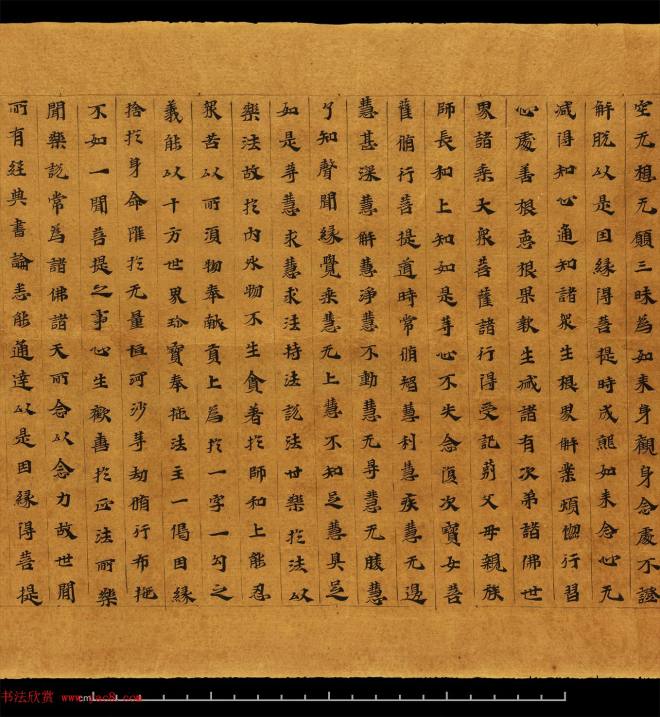 空无想无願三昧為如来身觀身念處不謬
解脱以是因縁得菩提時成就如来念心无
减得知心通知諸衆生根界解業煩惱行習
心處善根惡根果報生滅諸有次第諸佛世
界諸乘大衆菩薩諸行得受記莂父母親族
師長和上知如是等心不失念復次寳女菩
薩脩行菩提道時常脩智慧利慧疾慧无邊
慧甚深慧解慧淨慧不動慧无㝵慧无勝慧
了知聲聞縁覺乘慧无上慧不知足慧具足
如是等慧求慧求法持法說法世樂於法以
樂法故於内外物不生貪著於師和上能忍
衆苦以所湏物奉獻貢上為於一字一句之
義能以十方世界珎寳奉施法主一偈因縁
捨於身命雖於无量恒河沙等劫脩行布施
不如一聞菩提之事心生歡喜於正法所樂
聞樂說常為諸佛諸天所念以念力故世間
所有經典書論悉能通達以是因縁得菩提
书法欣赏
cm